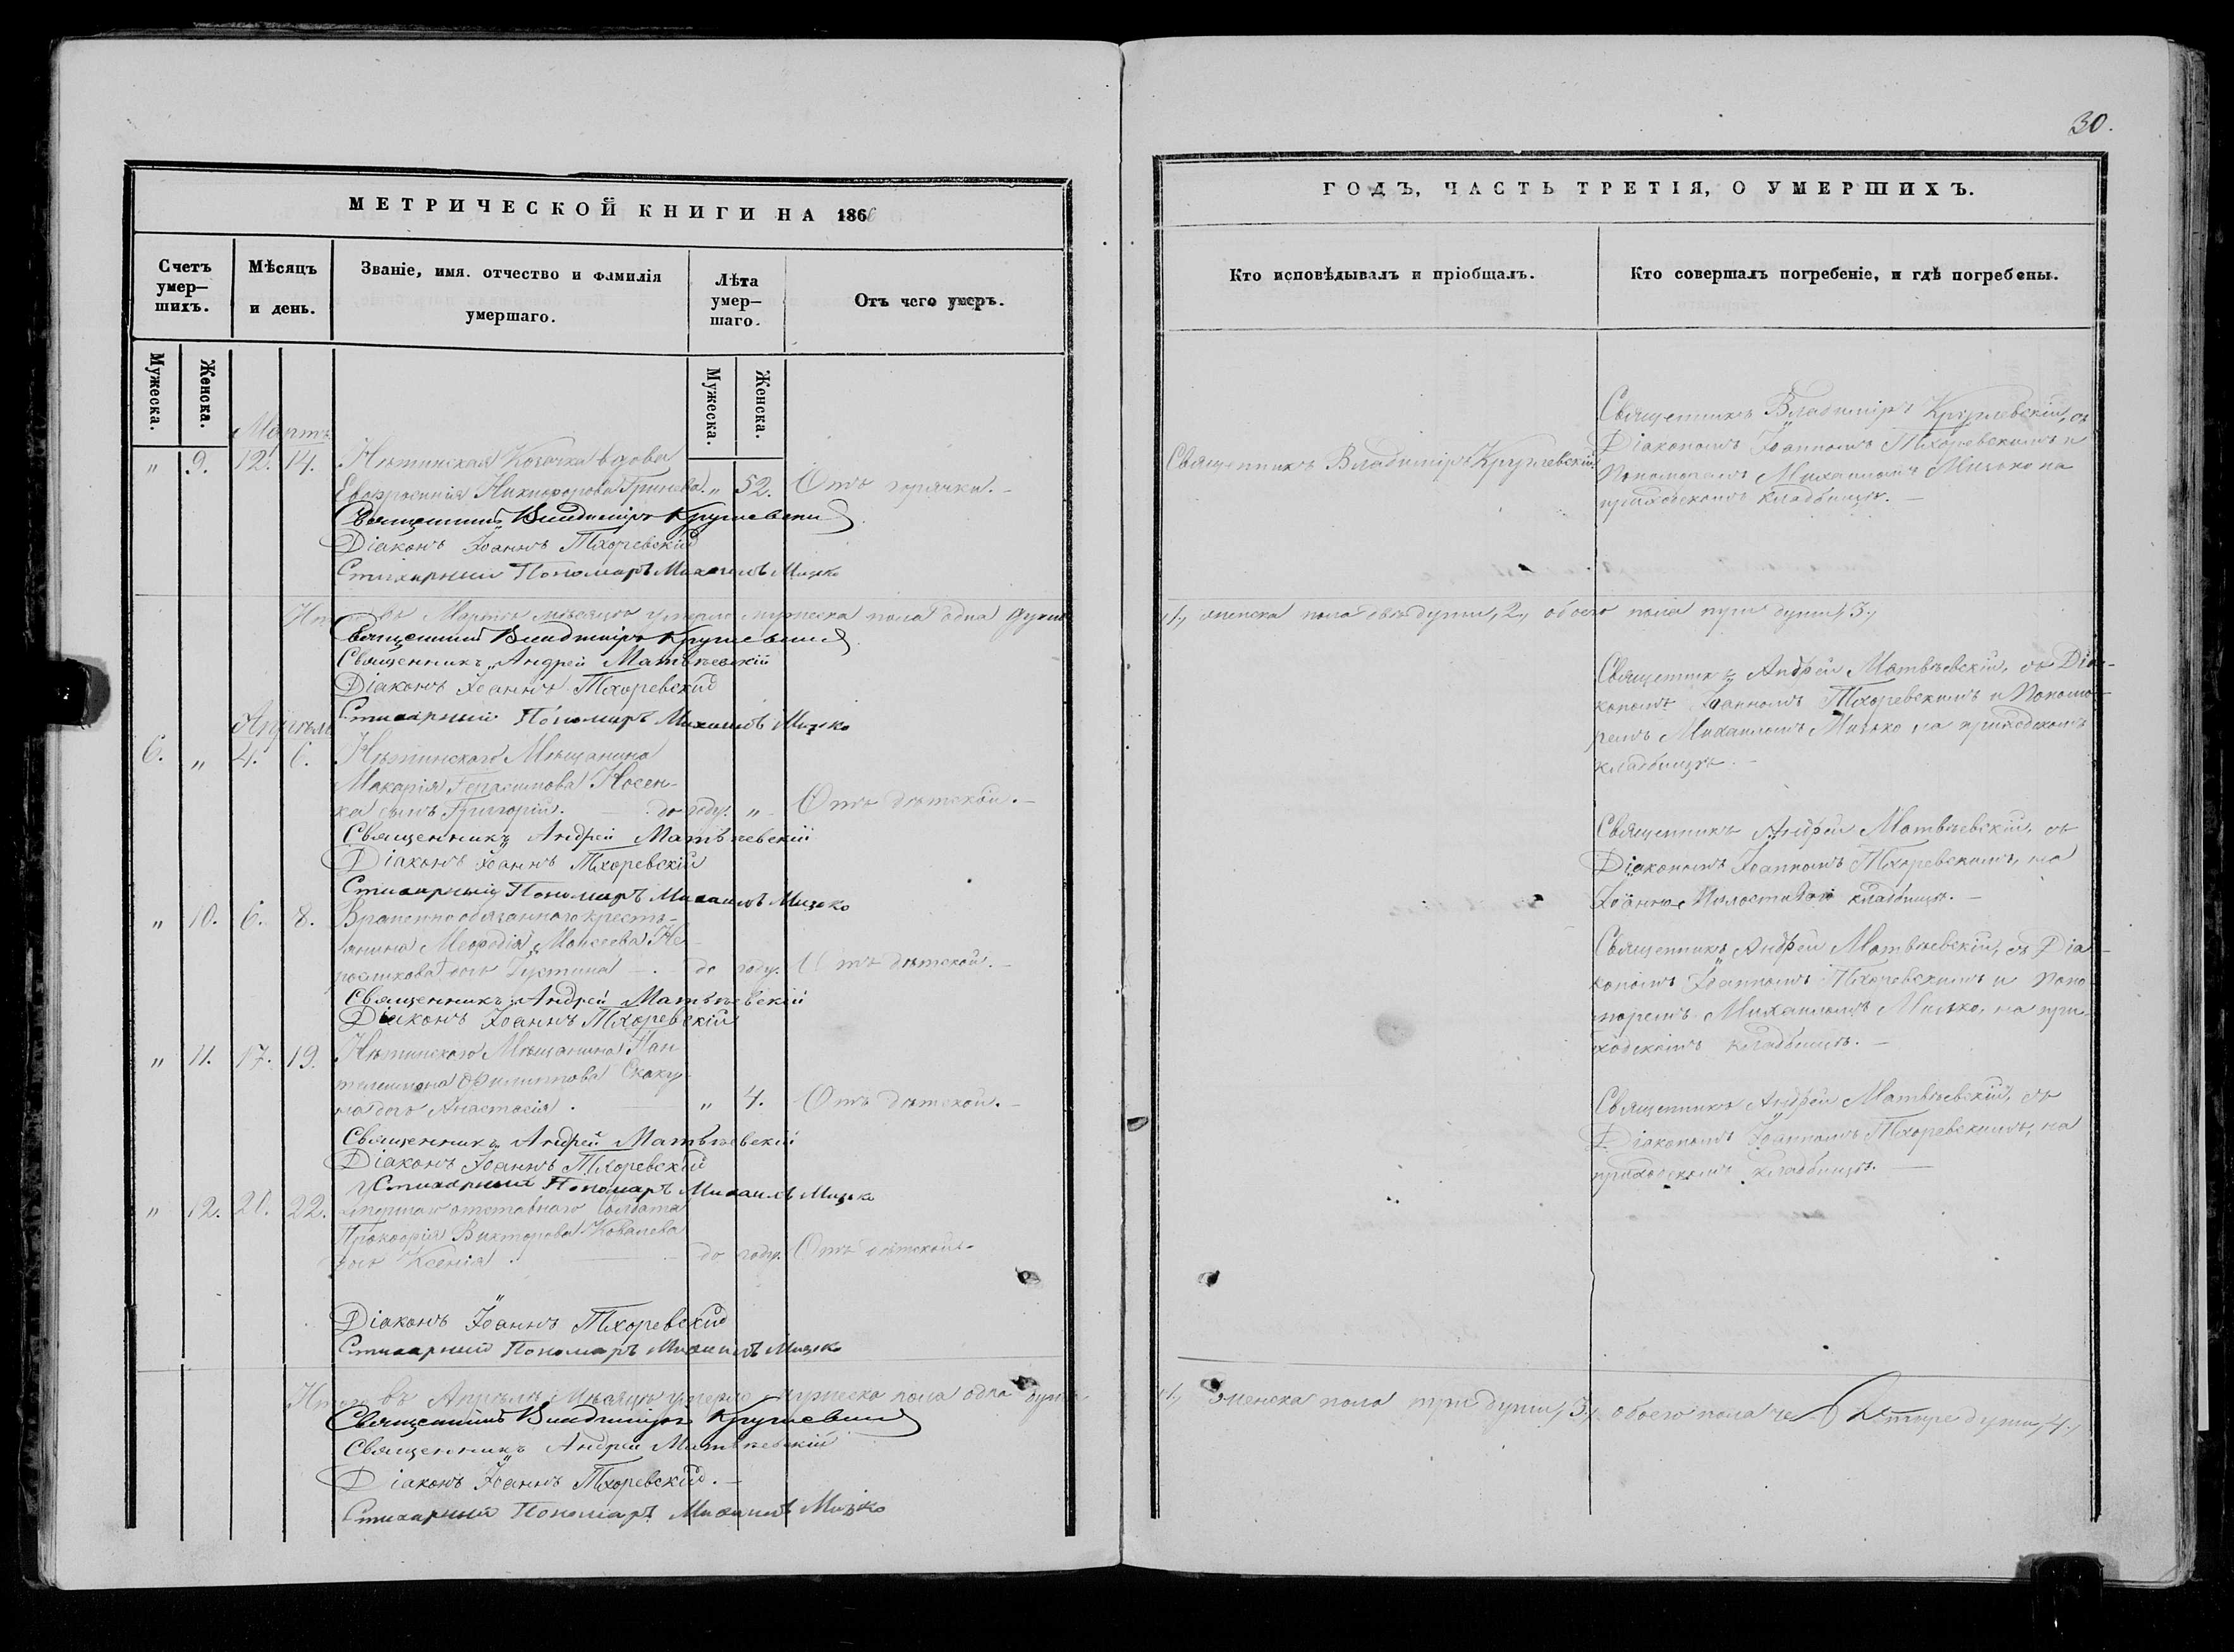 30.
МЕТРИЧЕСКОЙ КНИГИ НА 186
Счетъ умер—шихъ.
Мѣсяцъ и день.
Званіе, имя. отчество и фамилія умершаго.
Лѣта умер—шаго.
Отъ чего умеръ.
Мужеска.
Женска.
Мужеска.
Женска.
Мартъ
" 9. 12. 14. Нѣжинская Козачка вдова
Евфросинія Никифорова Гринева. " 52. Отъ горячки. –
Священникъ Владиміръ Кружевскій
Діаконъ Іоаннъ Тхоревскій
Стихарный Пономарь Михаилъ Мизько
въ Мартѣ мѣсяцѣ умерло мужеска пола одна душа
Священникъ Владиміръ Кружевскій
Священникъ Андрей Матвѣевскій
Діаконъ Іоаннъ Тхоревскій
Стихарный Пономарь Михаилъ Мизько
6. " 4. 6. Нѣжинскаго Мѣщанина
Макарія Герасимова Носен-
ка сынъ Григорій. — до году. " Отъ дѣтской. –
Священникъ Андрей Матвѣевскій
Діаконъ Іоаннъ Тхоревскій
Стихарный Пономарь Михаилъ Мизько
" 10. 6. 8. Временно обязаннаго кресть-
янина Меѳодія Моисеева
дочь —. до году. Отъ дѣтской. –
Священникъ Андрей Матвѣевскій
Діаконъ Іоаннъ Тхоревскій
" 11. 17. 19. Нѣжинскаго Мѣщанина Пан-
телеимона Филиппова Скаку-
на дочь Анастасія. — " 4. Отъ дѣтской. –
Священникъ Андрей Матвѣевскій
Діаконъ Іоаннъ Тхоревскій
Стихарный Пономарь Михаилъ Мизько
" 12. 20. 22. отставнаго Солдата
Прокофія Викторова Ковалева
дочь Ксенія. — до году. Отъ дѣтской. –
Діаконъ Іоаннъ Тхоревскій
Стихарный Пономарь Михаилъ Мизько
Итого въ Апрѣлѣ Мѣсяцѣ умерло мужеска пола одна душа
Священникъ Владиміръ Кружевскій
Священникъ Андрей Матвѣевскій
Діаконъ Іоаннъ Тхоревскій. –
Стихарный Пономарь Михаилъ Мизько
ГОДЪ, ЧАСТЬ ТРЕТІЯ, О УМЕРШИХЪ.
Кто исповѣдывалъ и пріобщалъ.
Кто совершалъ погребеніе, и гдѣ погребены.
Священникъ Владиміръ Кружевскій.
Священникъ Владиміръ Кружевскій, съ
Діакономъ Іоанномъ Тхоревскимъ и
Пономаремъ Михаиломъ Мизько на
приходскомъ кладбищѣ. —
/1., женска пола двѣ души, 2., обоего пола три души, 3.,
Священникъ Андрей Матвѣевскій, съ Діа-
кономъ Іоанномъ Тхоревскимъ и Понома-
ремъ Михаиломъ Мизько, на приходскомъ
кладбищѣ. –
Священникъ Андрей Матвѣевскій, съ
Діакономъ Іоанномъ Тхоревскимъ, на
кладбищѣ. –
Священникъ Андрей Матвѣевскій, съ Діа-
кономъ Іоанномъ Тхоревскимъ и Поно-
маремъ Михаиломъ Мизько, на при-
ходскомъ кладбищѣ. –
Священникъ Андрей Матвѣевскій, съ
Діакономъ Іоанномъ Тхоревскимъ, на
приходскомъ кладбищѣ. —
/1., женска пола три души, 3., обоего пола четыре души, 4.,